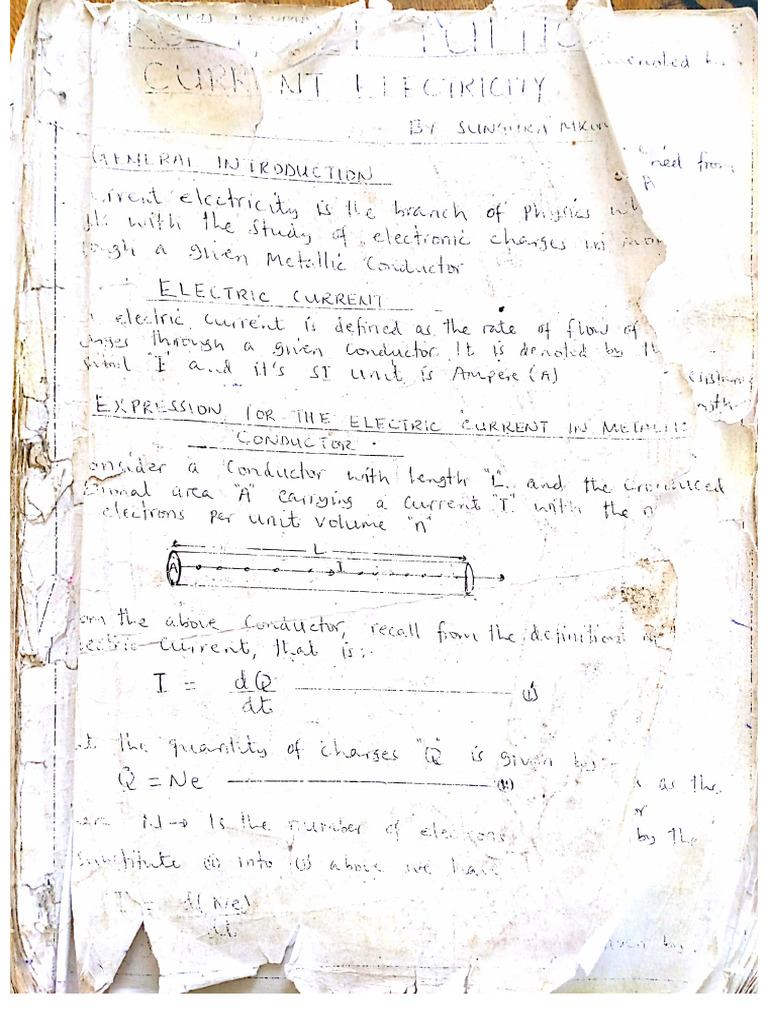 TUITION
CURRENT ELECTRICITY
BY SUNGURA
GENERAL INTRODUCTION
rrent electricity is the branch of physics
with the study of electronic charges in
ough a given Metallic Conductor
ELECTRIC CURRENT
electric current is defined as the rate of flow of
rges through a given conductor. It is denoted by
"I" and it's SI unit is Ampere (A)
EXPRESSION FOR THE ELECTRIC CURRENT IN METALLIC
CONDUCTOR.
onsider a conductor with length "L" and the
tional area "A" carrying a current "I" with the n
electrons per unit volume "n"
L
A I
om the above conductor, recall from the definition
ectric current, that is:-
I = dQ/dt (i)
the quantity of charges "Q" is given by:-
Q = Ne (ii)
Is the number of electrons
substitute (ii) into (i) above we have
I = d(Ne)/dt
enoted b
ned from
A
as the
or
by the
iven by